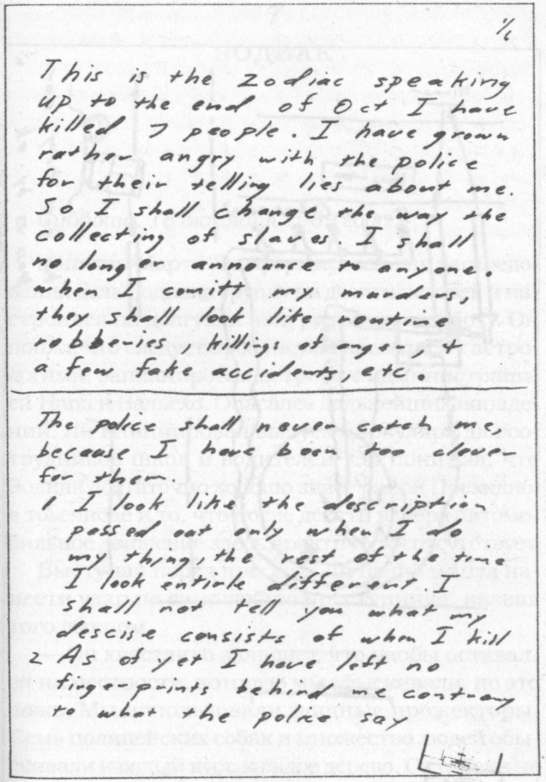 1/6
This is the Zodiac speaking
up to the end of Oct I have
killed 7 people. I have grown
rather angry with the police
for their telling lies about me.
So I shall change the way the
collecting of slaves. I shall
no longer announce to anyone.
when I comitt my murders,
they shall look like routine
robberies, killings of anger, &
a few fake accidents, etc.
The police shall never catch me,
because I have been too clever
for them.
1 I look like the description
passed out only when I do
my thing, the rest of the time
I look entirle different. I
shall not tell you what my
descise consists of when I kill
2 As of yet I have left no
fingerprints behind me contrary
to what the police say